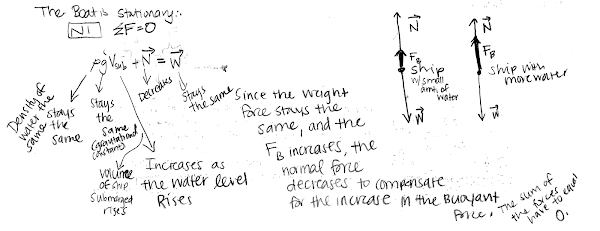 The Boat is stationary:.
N1 ΣF=0
ρgVsub + N = W
Density of
water the
same
stays
the
same
stays
the
same
(gravitational
constant)
volume
of ship
submerged
rises
Increases as
the water level
Rises
Decreases
stays
the same
Since the weight
force stays the
same, and the
FB increases, the
normal force
decreases to compensate
for the increase in the Buoyant
Force. The sum of
the forces
have to equal
0.
N
FB
ship
w/ small
amt of
water
W
N
FB
ship with
more water
W